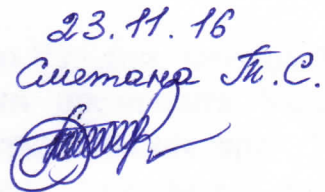 23.11.16
Сметана Т.С.